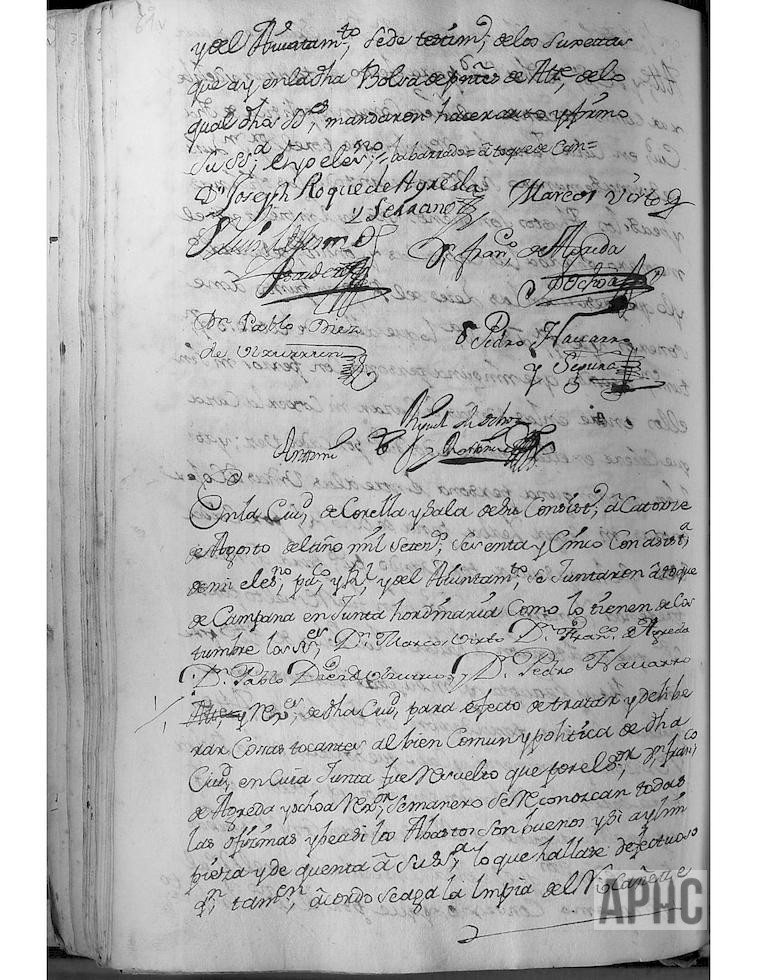 y del Aiuntam.to, se de testim.o, de los superar
que ay, en la dha Bolsa de de Alte, de lo
qual dhos SS.es, mandaron hacer auto y firmo
su Ss.a; el yo el es.no = la barrado = a toque de Can =
D.n Joseph Roque de Agreda Marcos Virto
y Serrano
D.n fran.co de Agreda
y Ochoa
D.n Pablo Diez
de Ulzurrun
Pedro Nauarro
y Segura
Miguel de Ochoa
Antemi
y Antonio
En la Ciu.d, de Corella y Sala de su Consist.o, a Catorze
de Agosto del año mil Seten.s, Sesenta y Cinco Con asist.a
de mi el es.no, pu.co, y R.l, y del Aiuntam.to, se Juntaron a toque
de Campana en Junta hordinaria Como lo tienen de Cos
tumbre los SS.es, D.n Marcos Virto D.n Fran.co, de Agreda
D.n Pablo Diez de Ulzurrun, y D.n Pedro Nauarro
Alte y Rex.es, de dha Ciu.d, para efecto de tratar y delibe
rar Cosas tocantes al bien Comun y politica de dha
Ciu.d, en Cuia Junta fue Resuelto que por el S.or, D.n fran.co
de Agreda y ochoa Rex.or, Semanero se Reconozcan todas
las ofizinas y bea si los Abastos son buenos y si ay lim
pieza y de quenta a Su Ss.a, lo que hallare defectuoso
q.n tam.en, acordo se aga la Limpia del
APHC